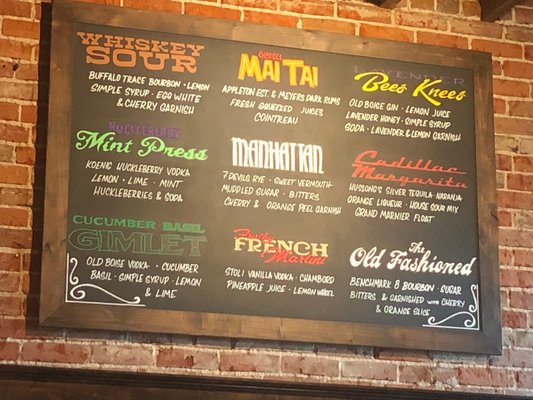 WHISKEY
SOUR
BUFFALO TRACE BOURBON - LEMON
SIMPLE SYRUP - EGG WHITE
& CHERRY GARNISH
HUCKLEBERRY
Mint Press
KOENIG HUCKLEBERRY VODKA
LEMON - LIME - MINT
HUCKLEBERRIES & SODA
CUCUMBER BASIL
GIMLET
OLD BOISE VODKA - CUCUMBER
BASIL - SIMPLE SYRUP - LEMON
& LIME
MAI TAI
APPLETON EST. & MEYERS DARK RUMS
FRESH SQUEEZED JUICES
COINTREAU
MANHATTAN
7 DEVILS RYE - SWEET VERMOUTH
MUDDLED SUGAR - BITTERS
CHERRY & ORANGE PEEL GARNISH
FRENCH
Martini
STOLI VANILLA VODKA - CHAMBORD
PINEAPPLE JUICE - LEMON WHEEL
LAVENDER
Bee's Knees
OLD BOISE GIN - LEMON JUICE
LAVENDER HONEY - SIMPLE SYRUP
SODA - LAVENDER & LEMON GARNISH
Cadillac
Margarita
HUSSONG'S SILVER TEQUILA - NARANJA
ORANGE LIQUEUR - HOUSE SOUR MIX
GRAND MARNIER FLOAT
The
Old Fashioned
BENCHMARK 8 BOURBON - SUGAR
BITTERS & GARNISHED WITH CHERRY
& ORANGE SLICE